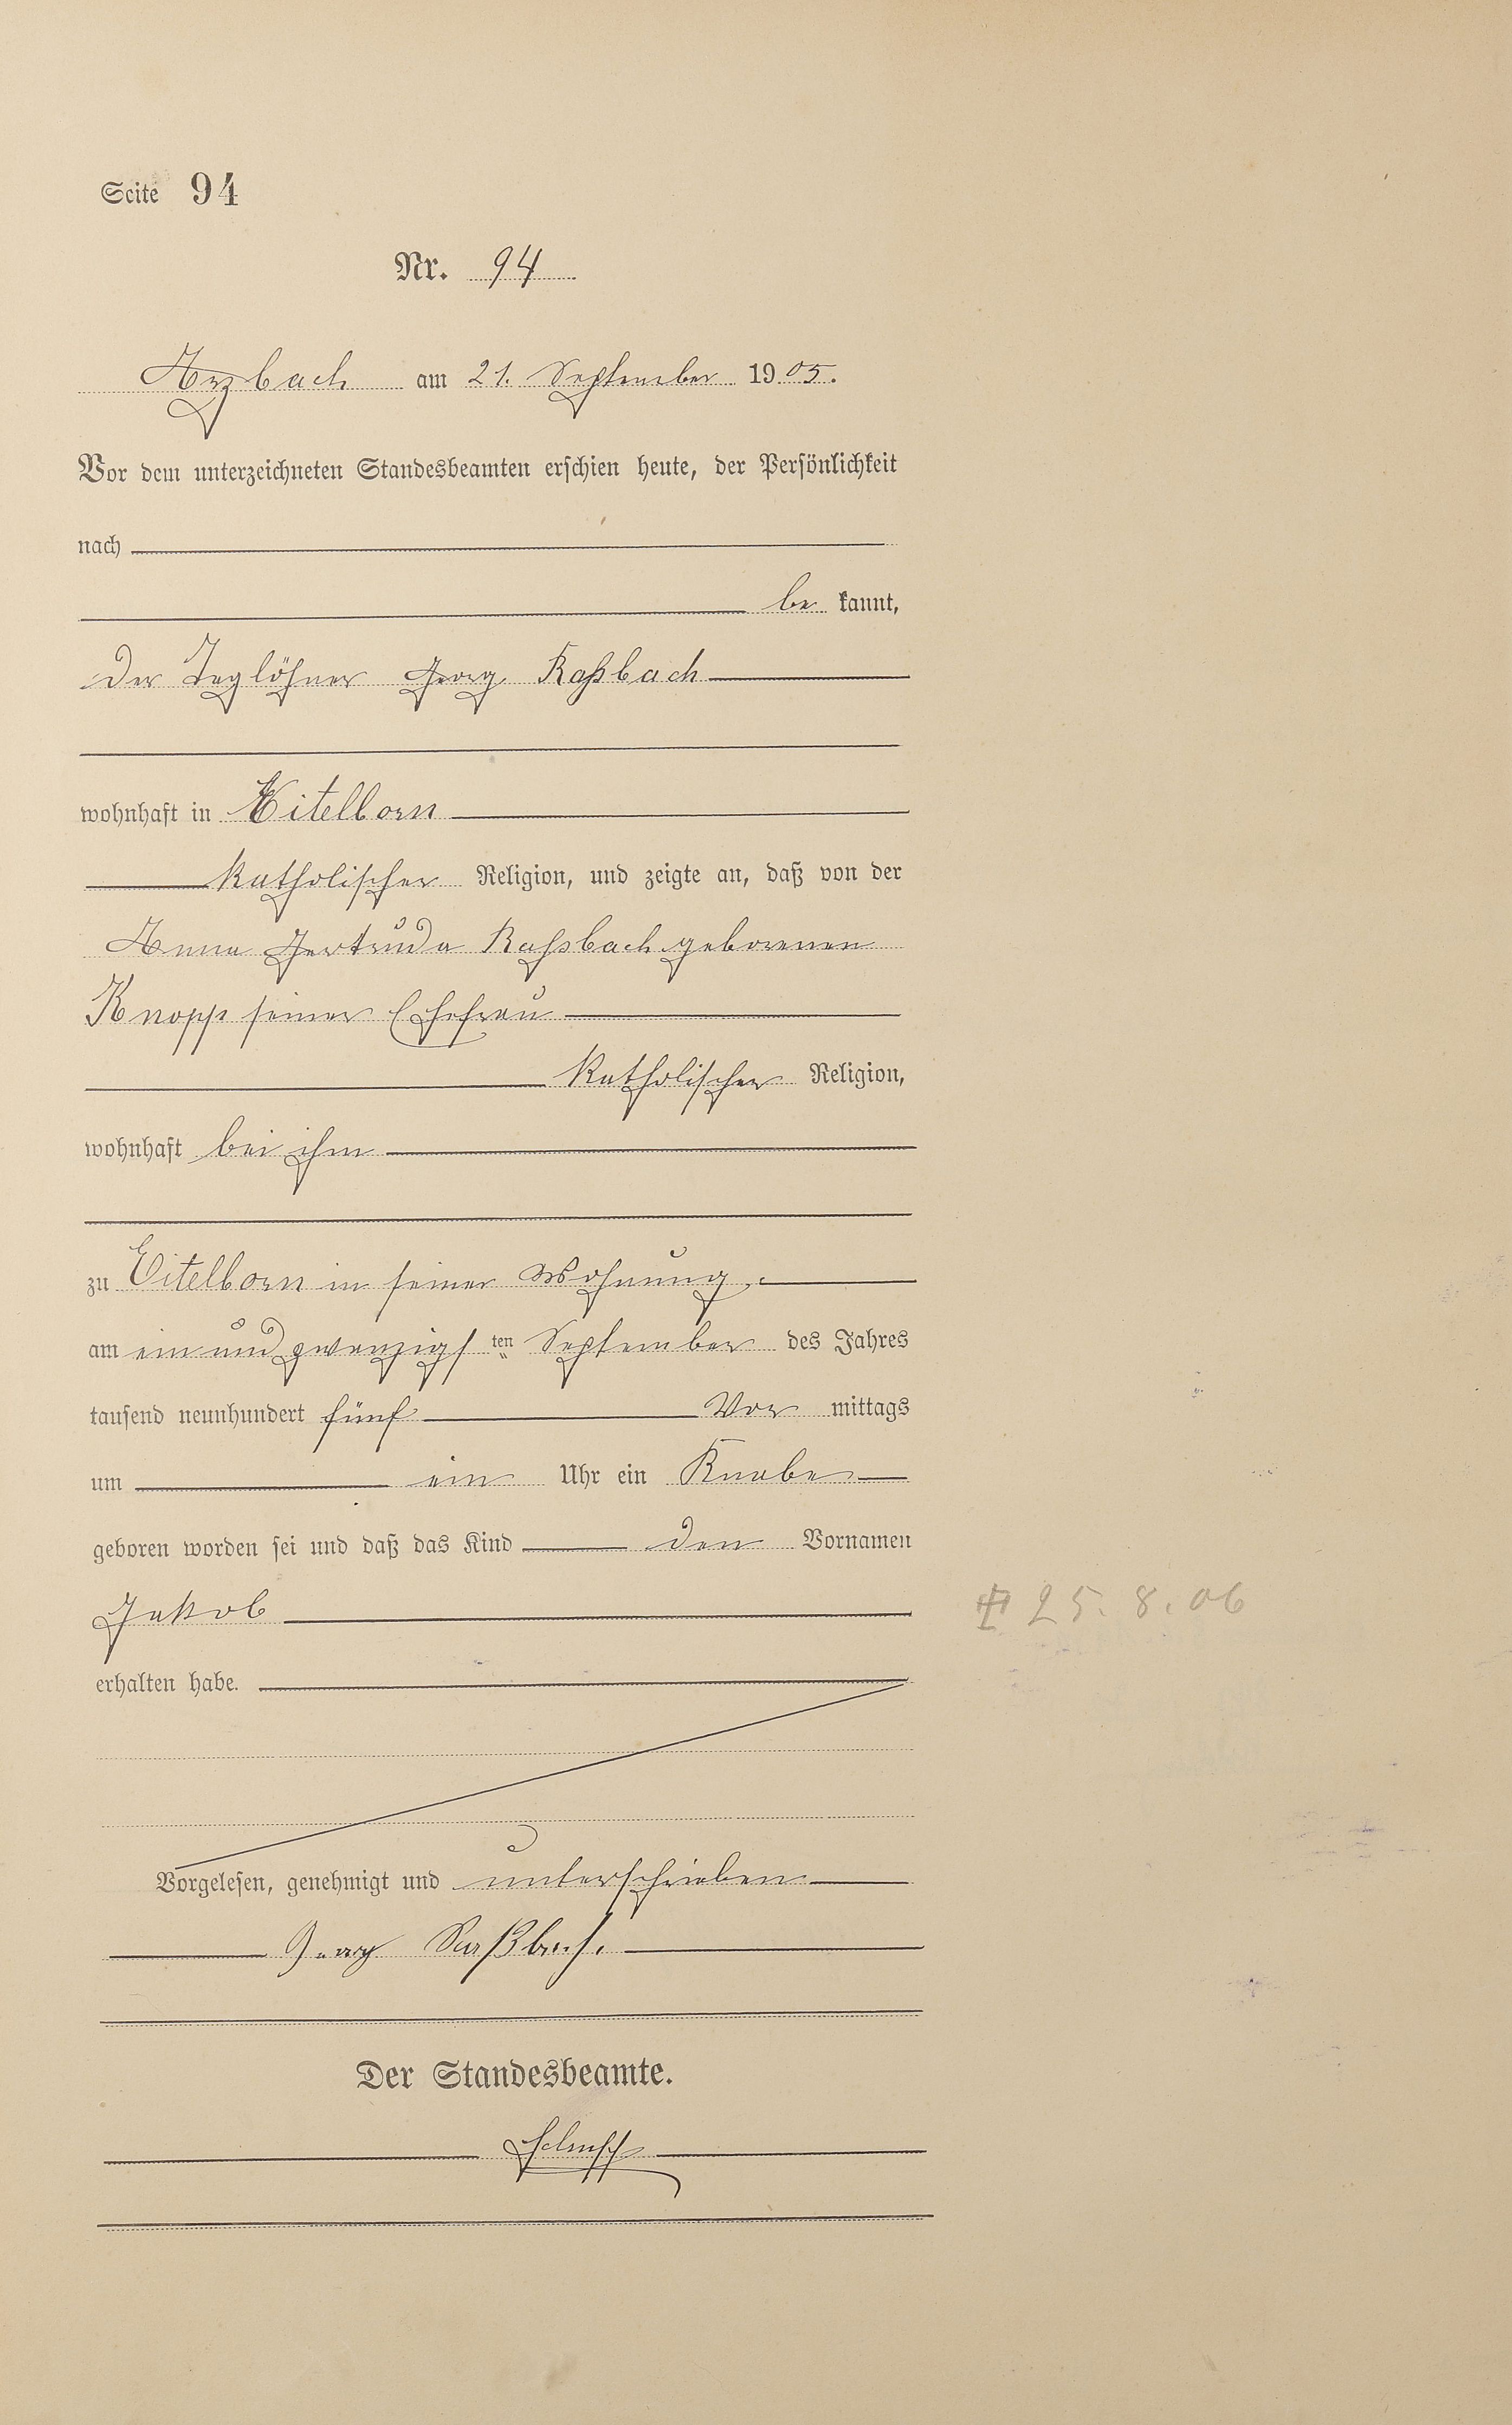 Seite 94
Nr. 94
Arzbach am 21. September 1905.
Vor dem unterzeichneten Standesbeamten erschien heute, der Persönlichkeit
nach
be kannt,
der Taglöhner Georg Raßbach
wohnhaft in Eitelborn
katholischer Religion, und zeigte an, daß von der
Anna Gertruda Raßbach geborenen
Knopp seiner Ehefrau
katholischer Religion,
wohnhaft bei ihm
zu Eitelborn in seiner Wohnung,
am ein und zwanzigsten September des Jahres
tausend neunhundert fünf Vor mittags
um ein Uhr ein Knabe
geboren worden sei und daß das Kind den Vornamen
Jakob
25. 8. 06
erhalten habe.
Vorgelesen, genehmigt und unterschrieben
Georg Raßbach.
Der Standesbeamte.